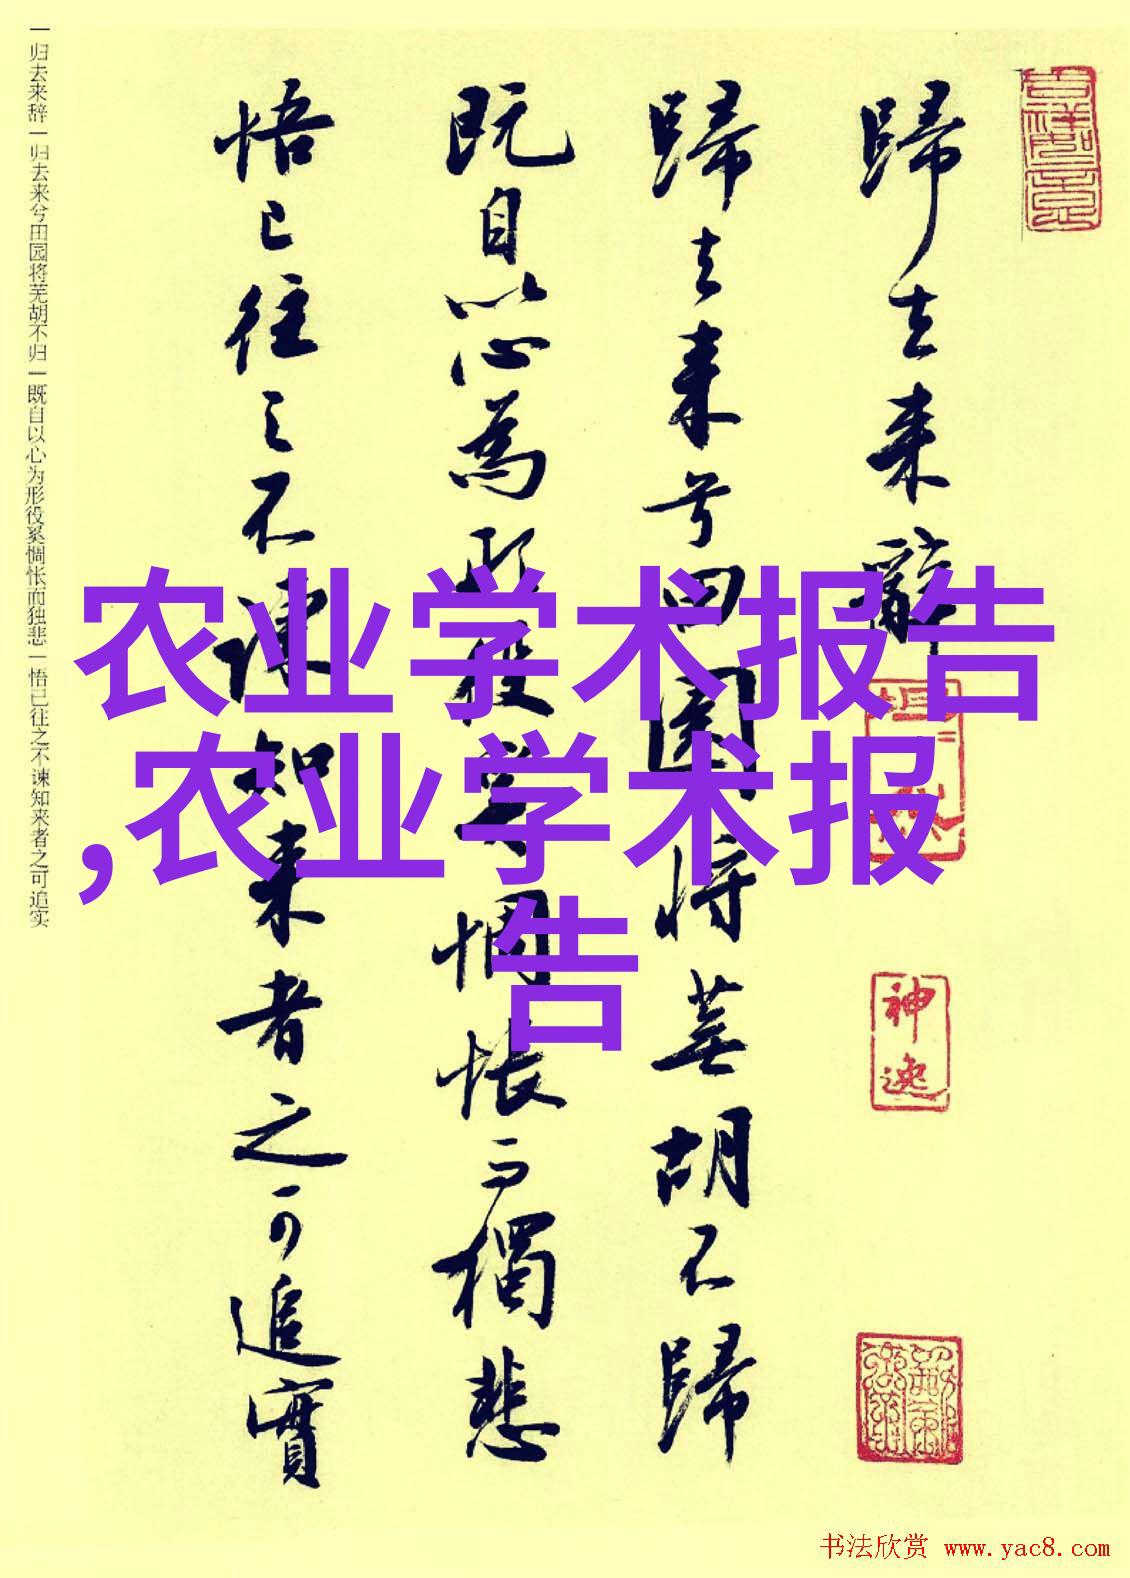 歸去来辭
歸去来兮田園将蕪胡不歸
既自以心為形役奚惆悵而獨悲
悟已往之不諫知来者之可追實
一归去来辞一归去来兮田园将芜胡不归一既自以心为形役奚惆怅而独悲一悟已往之不谏知来者之可追实
农业学术报告
,农业学术报
告
神逸
书法欣赏 www.yac8.com